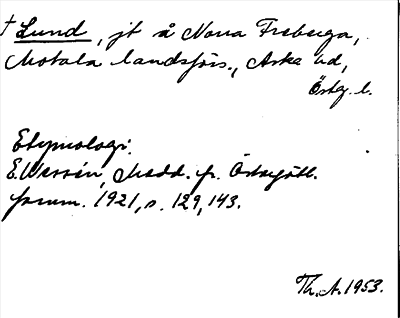 † Lund, jt å Norra Freberga,
Motala landsförs., Aska hd,
Östg. l.
Etymologi.
E. Wessén, Medd. fr. Östergötl.
fornm. 1921, s. 129, 143.
Th. A. 1953.